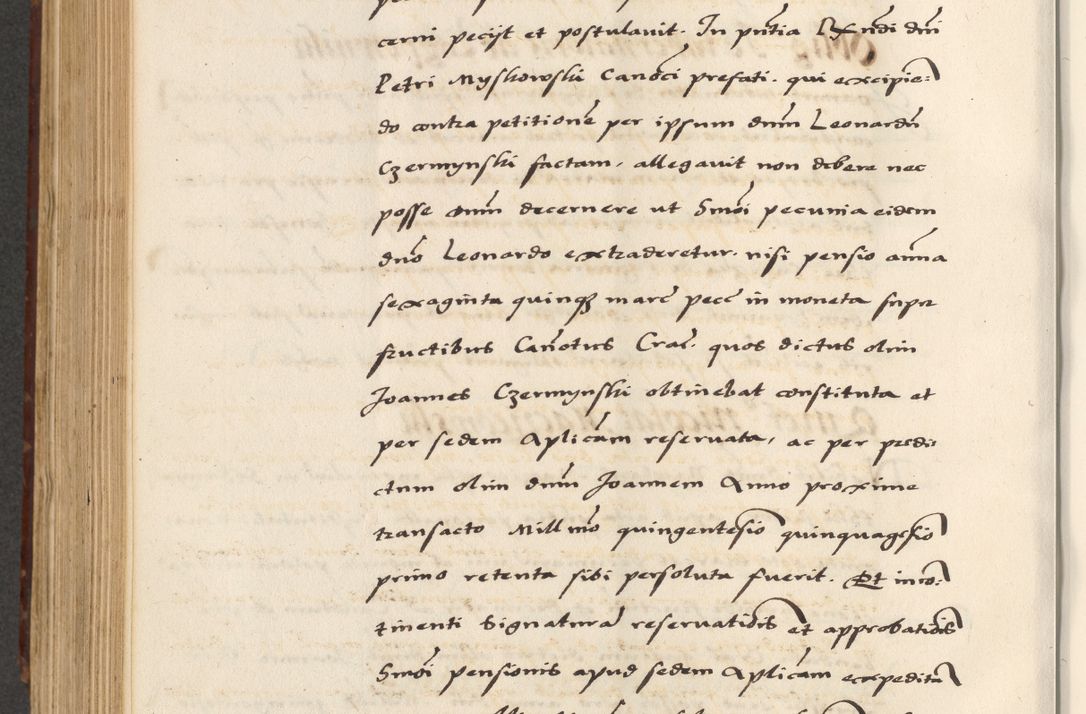 cerni pecijt et postulavit. In pñtia Rx̃ndi dnĩ
Petri Myskowski Canoci prefati. qui excipie:
do contra petitionẽ per ipsum dnũm Leonardũ
Czermynski factam, allegavit non debere nec
posse dnũm decernere ut Smõi pecunia eidem
dnõ Leonardo extraderetur. nisi pensio anña
sexaginta quinq3 marc̃ pecc̃ in moneta super
fructibus Canõtus Crac̃. quos dictus olim
Joannes Czermynski obtinebat constituta et
per sedem Aplicãm reservata, ac per predi
ctum olim dnũm Joannem Anno proxime
transacto Mill mõ quingentesio quinquagesio
primo retenta sibi persoluta fuerit. Et inco:
tinenti Signaturã reservatiõis et approbatiõis
Smõi pensionis apud sedem Aplicãm expedita